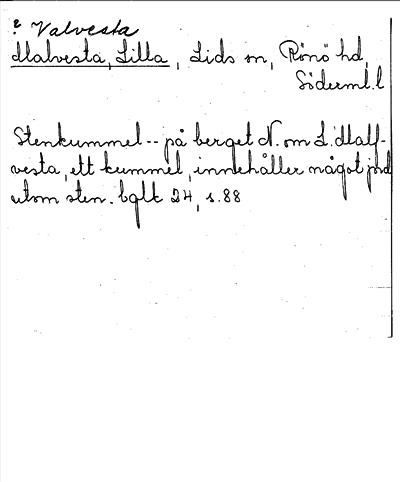 ? Valvesta
Malvesta, Lilla, Lids sn, Rönö hd,
Söderml. l
Stenkummel -- på berget N. om L. Malf-
vesta, ett kummel, innehåller något jord
utom sten. bglt 24, s. 88